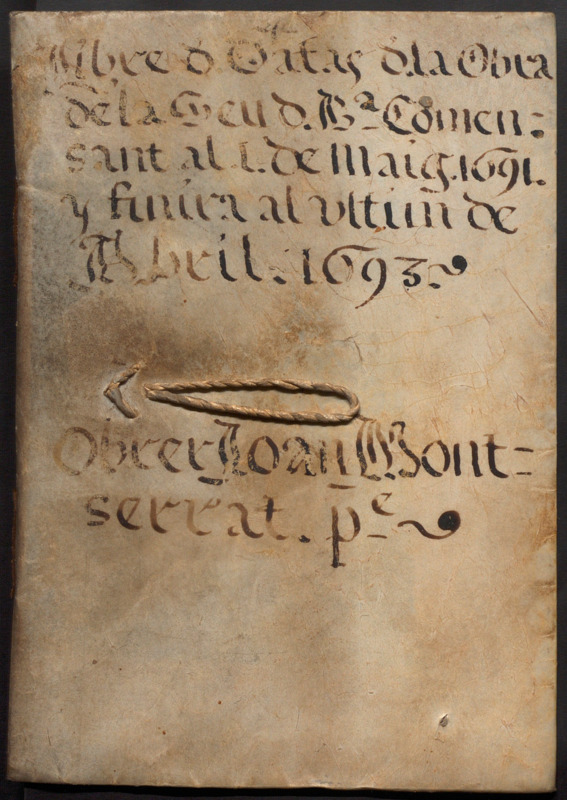 Llibre d. Datas d.la Obra
de la Seu d. Bª. Comen=
sant al 1. de Maig. 1691.
y finira al ultim de
Abril. 1693.
Obrer Joan Mont=
serrat. pᵉ